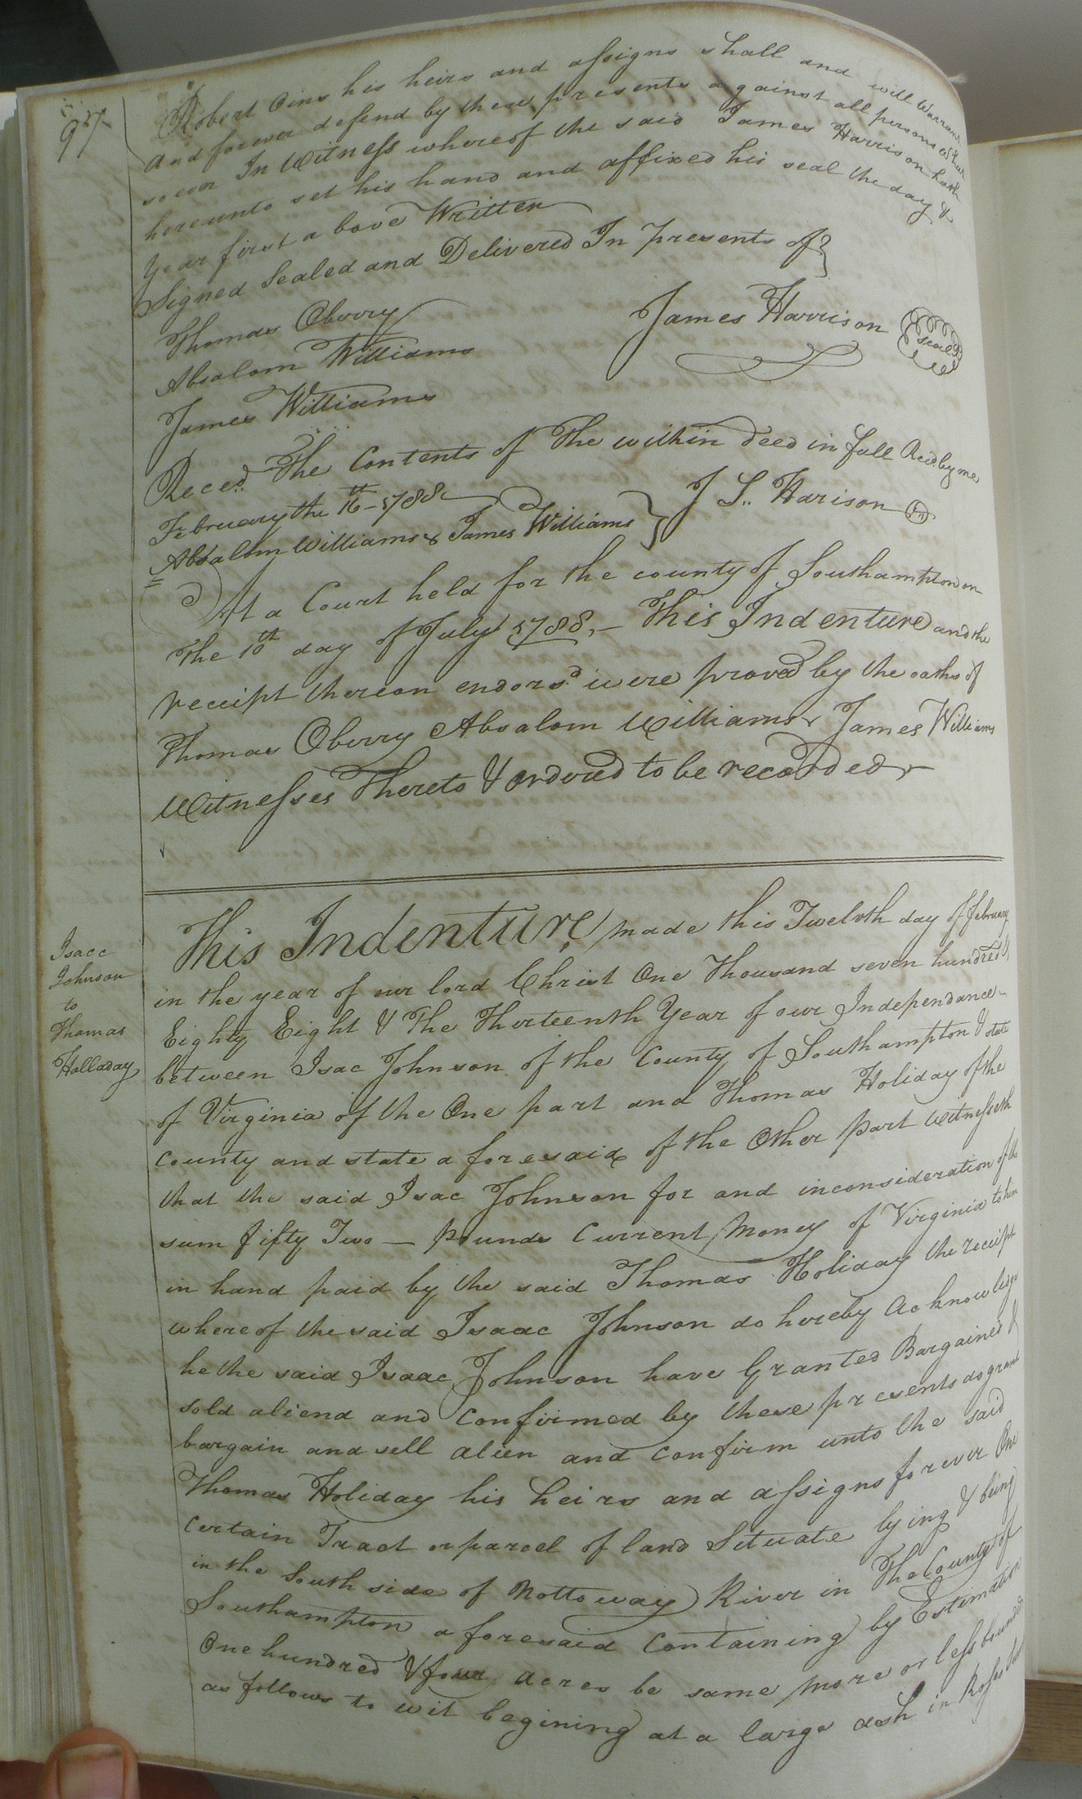 Robert Oins his heirs and assigns shall and will Warrant
and forever defend by these presents against all persons what
soever In Witness whereof the said James Harrison hath
hereunto set his hand and affixed his seal the day &
Year first above Written
Signed Sealed and Delivered In presents of
Thomas Oberry
James Harrison seal
Absalom Williams
James Williams
Reced. The Contents of The within deed in full Recd. by me
February the 16th 1788
J S.. Harison
Absalom Williams & James Williams
At a Court held for the county of Southampton on
the 10th day of July 1788, This Indenture and the
receipt thereon endorsd were proved by the oaths of
Thomas Oberry Absalom Williams & James Williams
Witnesses Thereto & ordered to be recorded
Isacc
Johnson
to
Thomas
Holladay
This Indenture, made this Twelvth day of february
in the year of our lord Christ One Thousand seven hundred &
Eighty Eight & The Thirteenth Year of our Independance
between Isac Johnson of the County of Southampton & state
of Virginia of the One part and Thomas Holiday of the
county and state aforesaid of the Other part witnesseth
that the said Isac Johnson for and inconsideration of the
sum fifty Two pounds Current Money of Virginia to him
in hand paid by the said Thomas Holiday the receipt
whereof the said Isaac Johnson do hereby acknowlige
he the said Isaac Johnson have Granted Bargained &
sold aliend and Confirmed by these presents do grant
bargain and sell alien and confirm unto the said
Thomas Holiday his heirs and assigns forever One
certain Tract or parcel of land Situate lying & being
in the South side of Nottoway River in The County of
Southampton aforesaid containing by Estimation
One hundred & four acres be same more or less bounded
as follows to wit begining at a large ash in